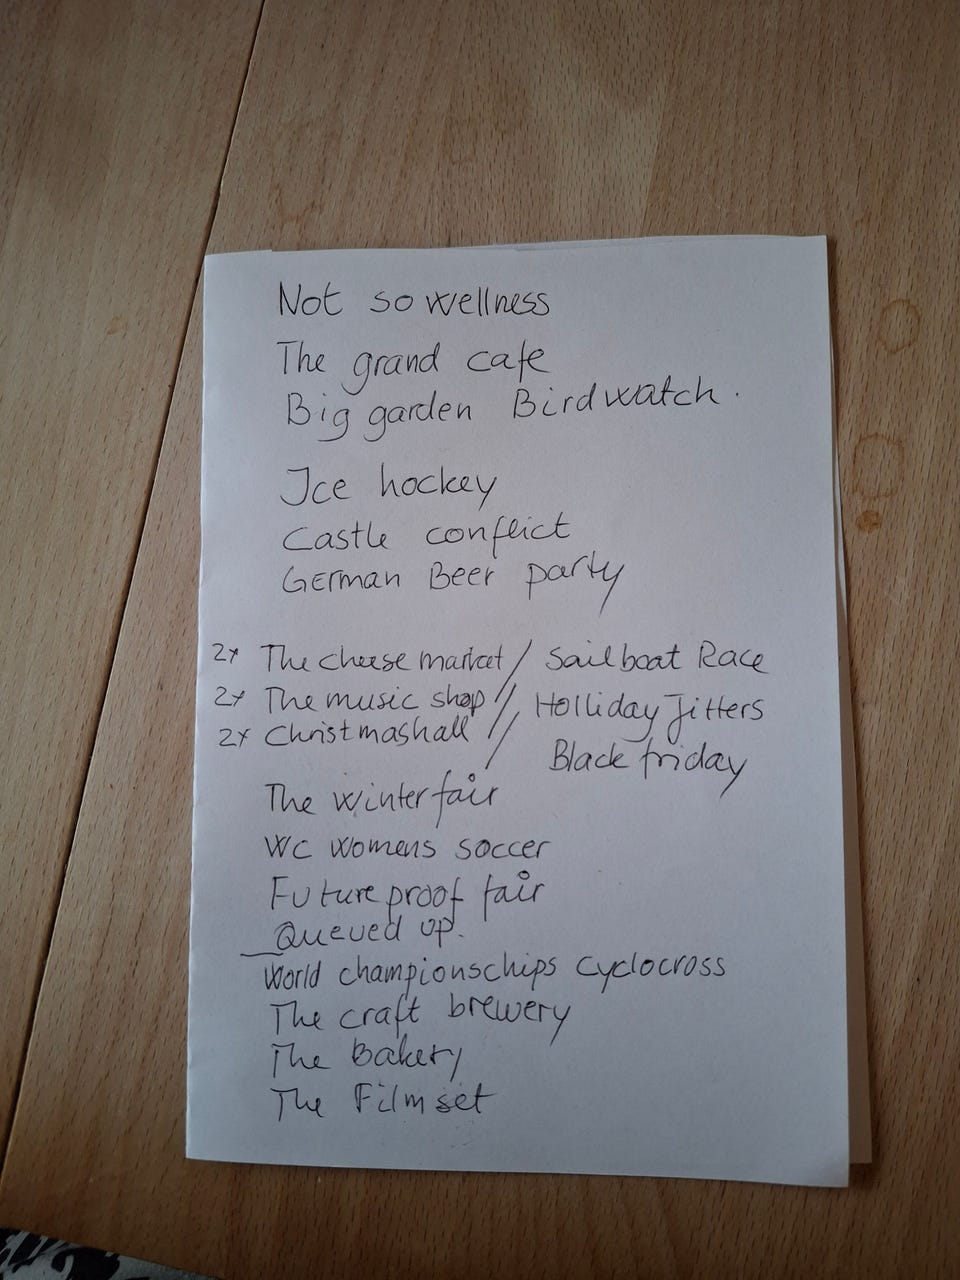 Not so wellness
The grand cafe
Big garden Birdwatch.
Ice hockey
Castle conflict
German Beer party
2x The cheese market / Sailboat Race
2x The music shop // Holliday Jitters
2x Christmashall / Black friday
The winterfair
WC womens soccer
Future proof fair
_Queued up.
World championschips cyclocross
The craft brewery
The Bakery
The Filmset